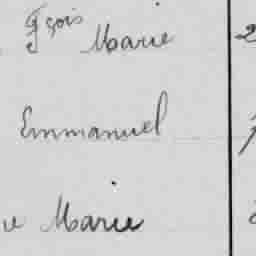 Fçois Marie 2
Emmanuel
Marie